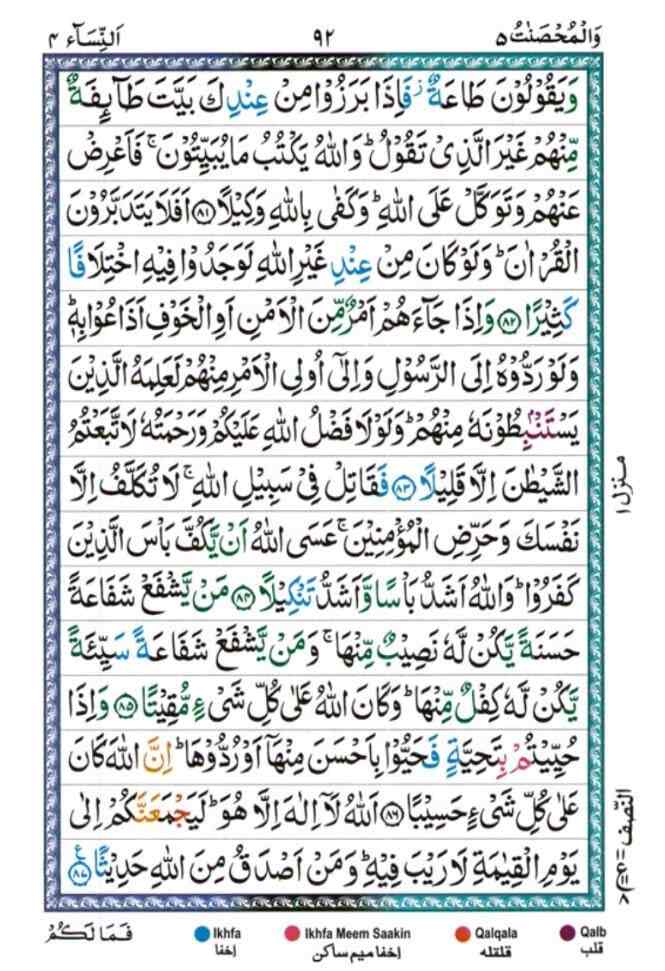 وَالْمُحْصَنٰتُ ٥
٩٢
اَلنِّسَآء ٤
وَيَقُوْلُوْنَ طَاعَةٌ ۫ فَاِذَا بَرَزُوْا مِنْ عِنْدِكَ بَيَّتَ طَآئِفَةٌ
مِّنْهُمْ غَيْرَ الَّذِىْ تَقُوْلُ ؕ وَاللّٰهُ يَكْتُبُ مَا يُبَيِّتُوْنَ ۚ فَاَعْرِضْ
عَنْهُمْ وَتَوَكَّلْ عَلَى اللّٰهِ ؕ وَكَفٰى بِاللّٰهِ وَكِيْلًا ﴿٨١﴾ اَفَلَا يَتَدَبَّرُوْنَ
الْقُرْاٰنَ ؕ وَلَوْ كَانَ مِنْ عِنْدِ غَيْرِ اللّٰهِ لَوَجَدُوْا فِيْهِ اخْتِلَافًا
كَثِيْرًا ﴿٨٢﴾ وَاِذَا جَآءَهُمْ اَمْرٌ مِّنَ الْاَمْنِ اَوِ الْخَوْفِ اَذَاعُوْا بِهٖ ؕ
وَلَوْ رَدُّوْهُ اِلَى الرَّسُوْلِ وَاِلٰٓى اُولِى الْاَمْرِ مِنْهُمْ لَعَلِمَهُ الَّذِيْنَ
يَسْتَنْۢبِطُوْنَهٗ مِنْهُمْ ؕ وَلَوْلَا فَضْلُ اللّٰهِ عَلَيْكُمْ وَرَحْمَتُهٗ لَاتَّبَعْتُمُ
الشَّيْطٰنَ اِلَّا قَلِيْلًا ﴿٨٣﴾ فَقَاتِلْ فِىْ سَبِيْلِ اللّٰهِ ۚ لَا تُكَلَّفُ اِلَّا
نَفْسَكَ وَحَرِّضِ الْمُؤْمِنِيْنَ ۚ عَسَى اللّٰهُ اَنْ يَّكُفَّ بَاْسَ الَّذِيْنَ
كَفَرُوْا ؕ وَاللّٰهُ اَشَدُّ بَاْسًا وَّاَشَدُّ تَنْكِيْلًا ﴿٨٤﴾ مَنْ يَّشْفَعْ شَفَاعَةً
حَسَنَةً يَّكُنْ لَّهٗ نَصِيْبٌ مِّنْهَا ۚ وَمَنْ يَّشْفَعْ شَفَاعَةً سَيِّئَةً
يَّكُنْ لَّهٗ كِفْلٌ مِّنْهَا ؕ وَكَانَ اللّٰهُ عَلٰى كُلِّ شَىْءٍ مُّقِيْتًا ﴿٨٥﴾ وَاِذَا
حُيِّيْتُمْ بِتَحِيَّةٍ فَحَيُّوْا بِاَحْسَنَ مِنْهَاۤ اَوْ رُدُّوْهَا ؕ اِنَّ اللّٰهَ كَانَ
عَلٰى كُلِّ شَىْءٍ حَسِيْبًا ﴿٨٦﴾ اَللّٰهُ لَاۤ اِلٰهَ اِلَّا هُوَ ؕ لَيَجْمَعَنَّكُمْ اِلٰى
يَوْمِ الْقِيٰمَةِ لَا رَيْبَ فِيْهِ ؕ وَمَنْ اَصْدَقُ مِنَ اللّٰهِ حَدِيْثًا ﴿٨٧﴾ ع
منزل ١
النصف
فَمَا لَكُمْ
Ikhfa
اخفا
Ikhfa Meem Saakin
اخفا میم ساکن
Qalqala
قلقله
Qalb
قلب